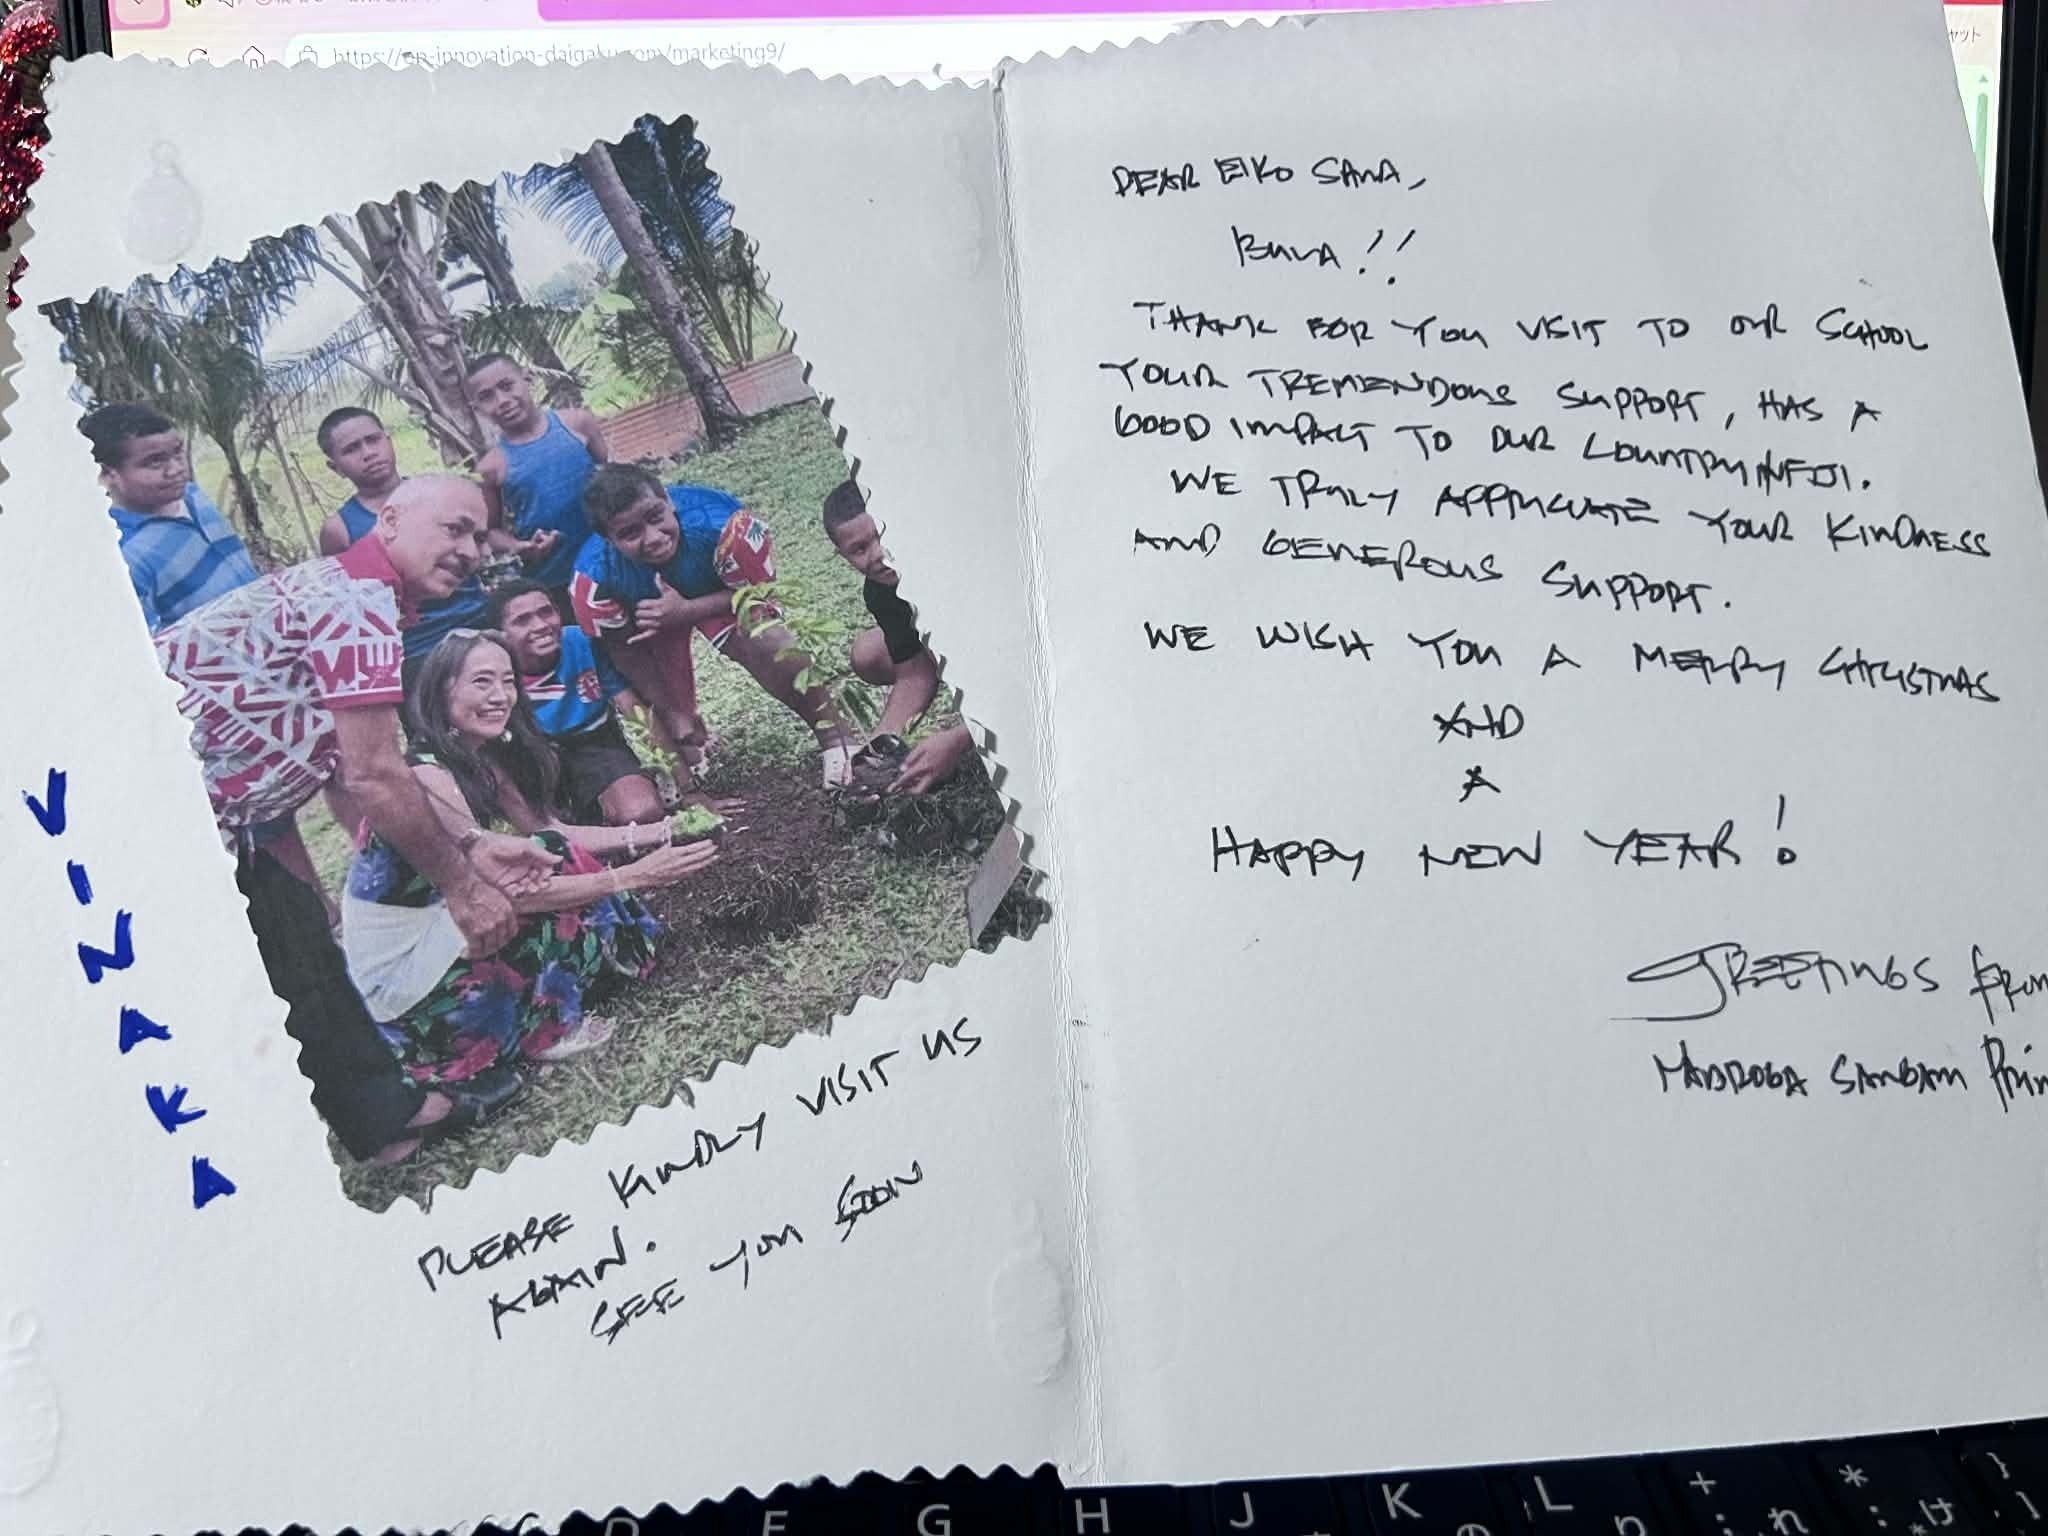 https://ep-innovation-daigaku.com/marketing9/
VINAKA
PLEASE KINDLY VISIT US
AGAIN.
SEE YOU SOON
DEAR EIKO SAMA,
BULA!!
THANK FOR YOU VISIT TO OUR SCHOOL
YOUR TREMENDOUS SUPPORT, HAS A
GOOD IMPACT TO OUR COUNTRY IN FIJI.
WE TRULY APPRICIATE YOUR KINDNESS
AND GENEROUS SUPPORT.
WE WISH YOU A MERRY CHRISTMAS
AND
A
HAPPY NEW YEAR!
GREETINGS FROM
SANGAM
G
H
J
K
L
+
*
れ
け